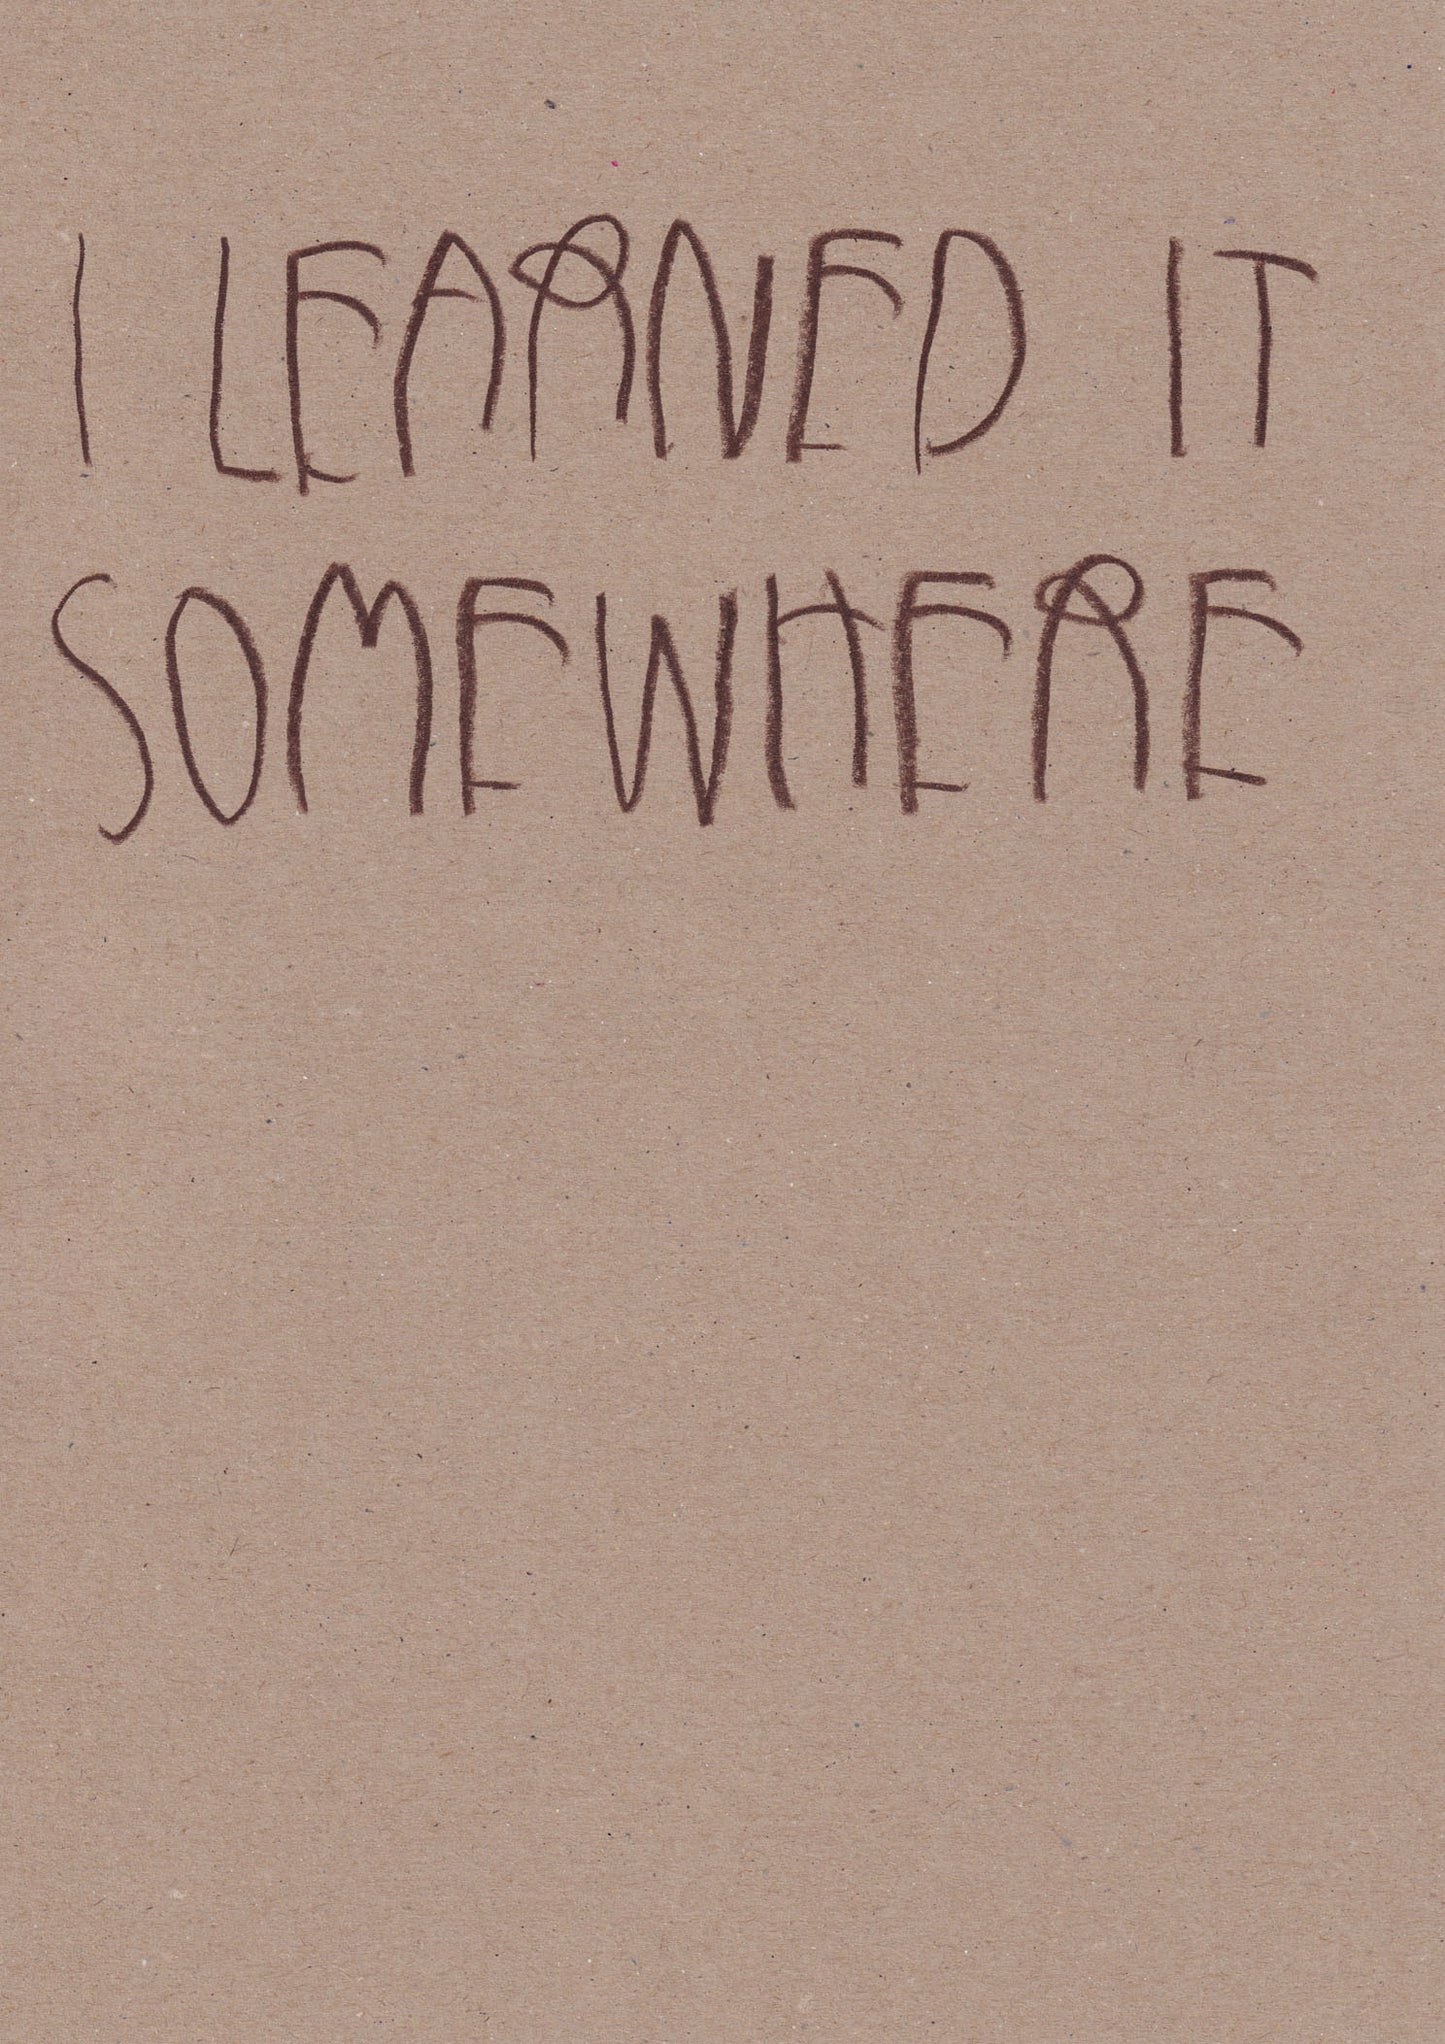 I LEARNED IT
SOMEWHERE